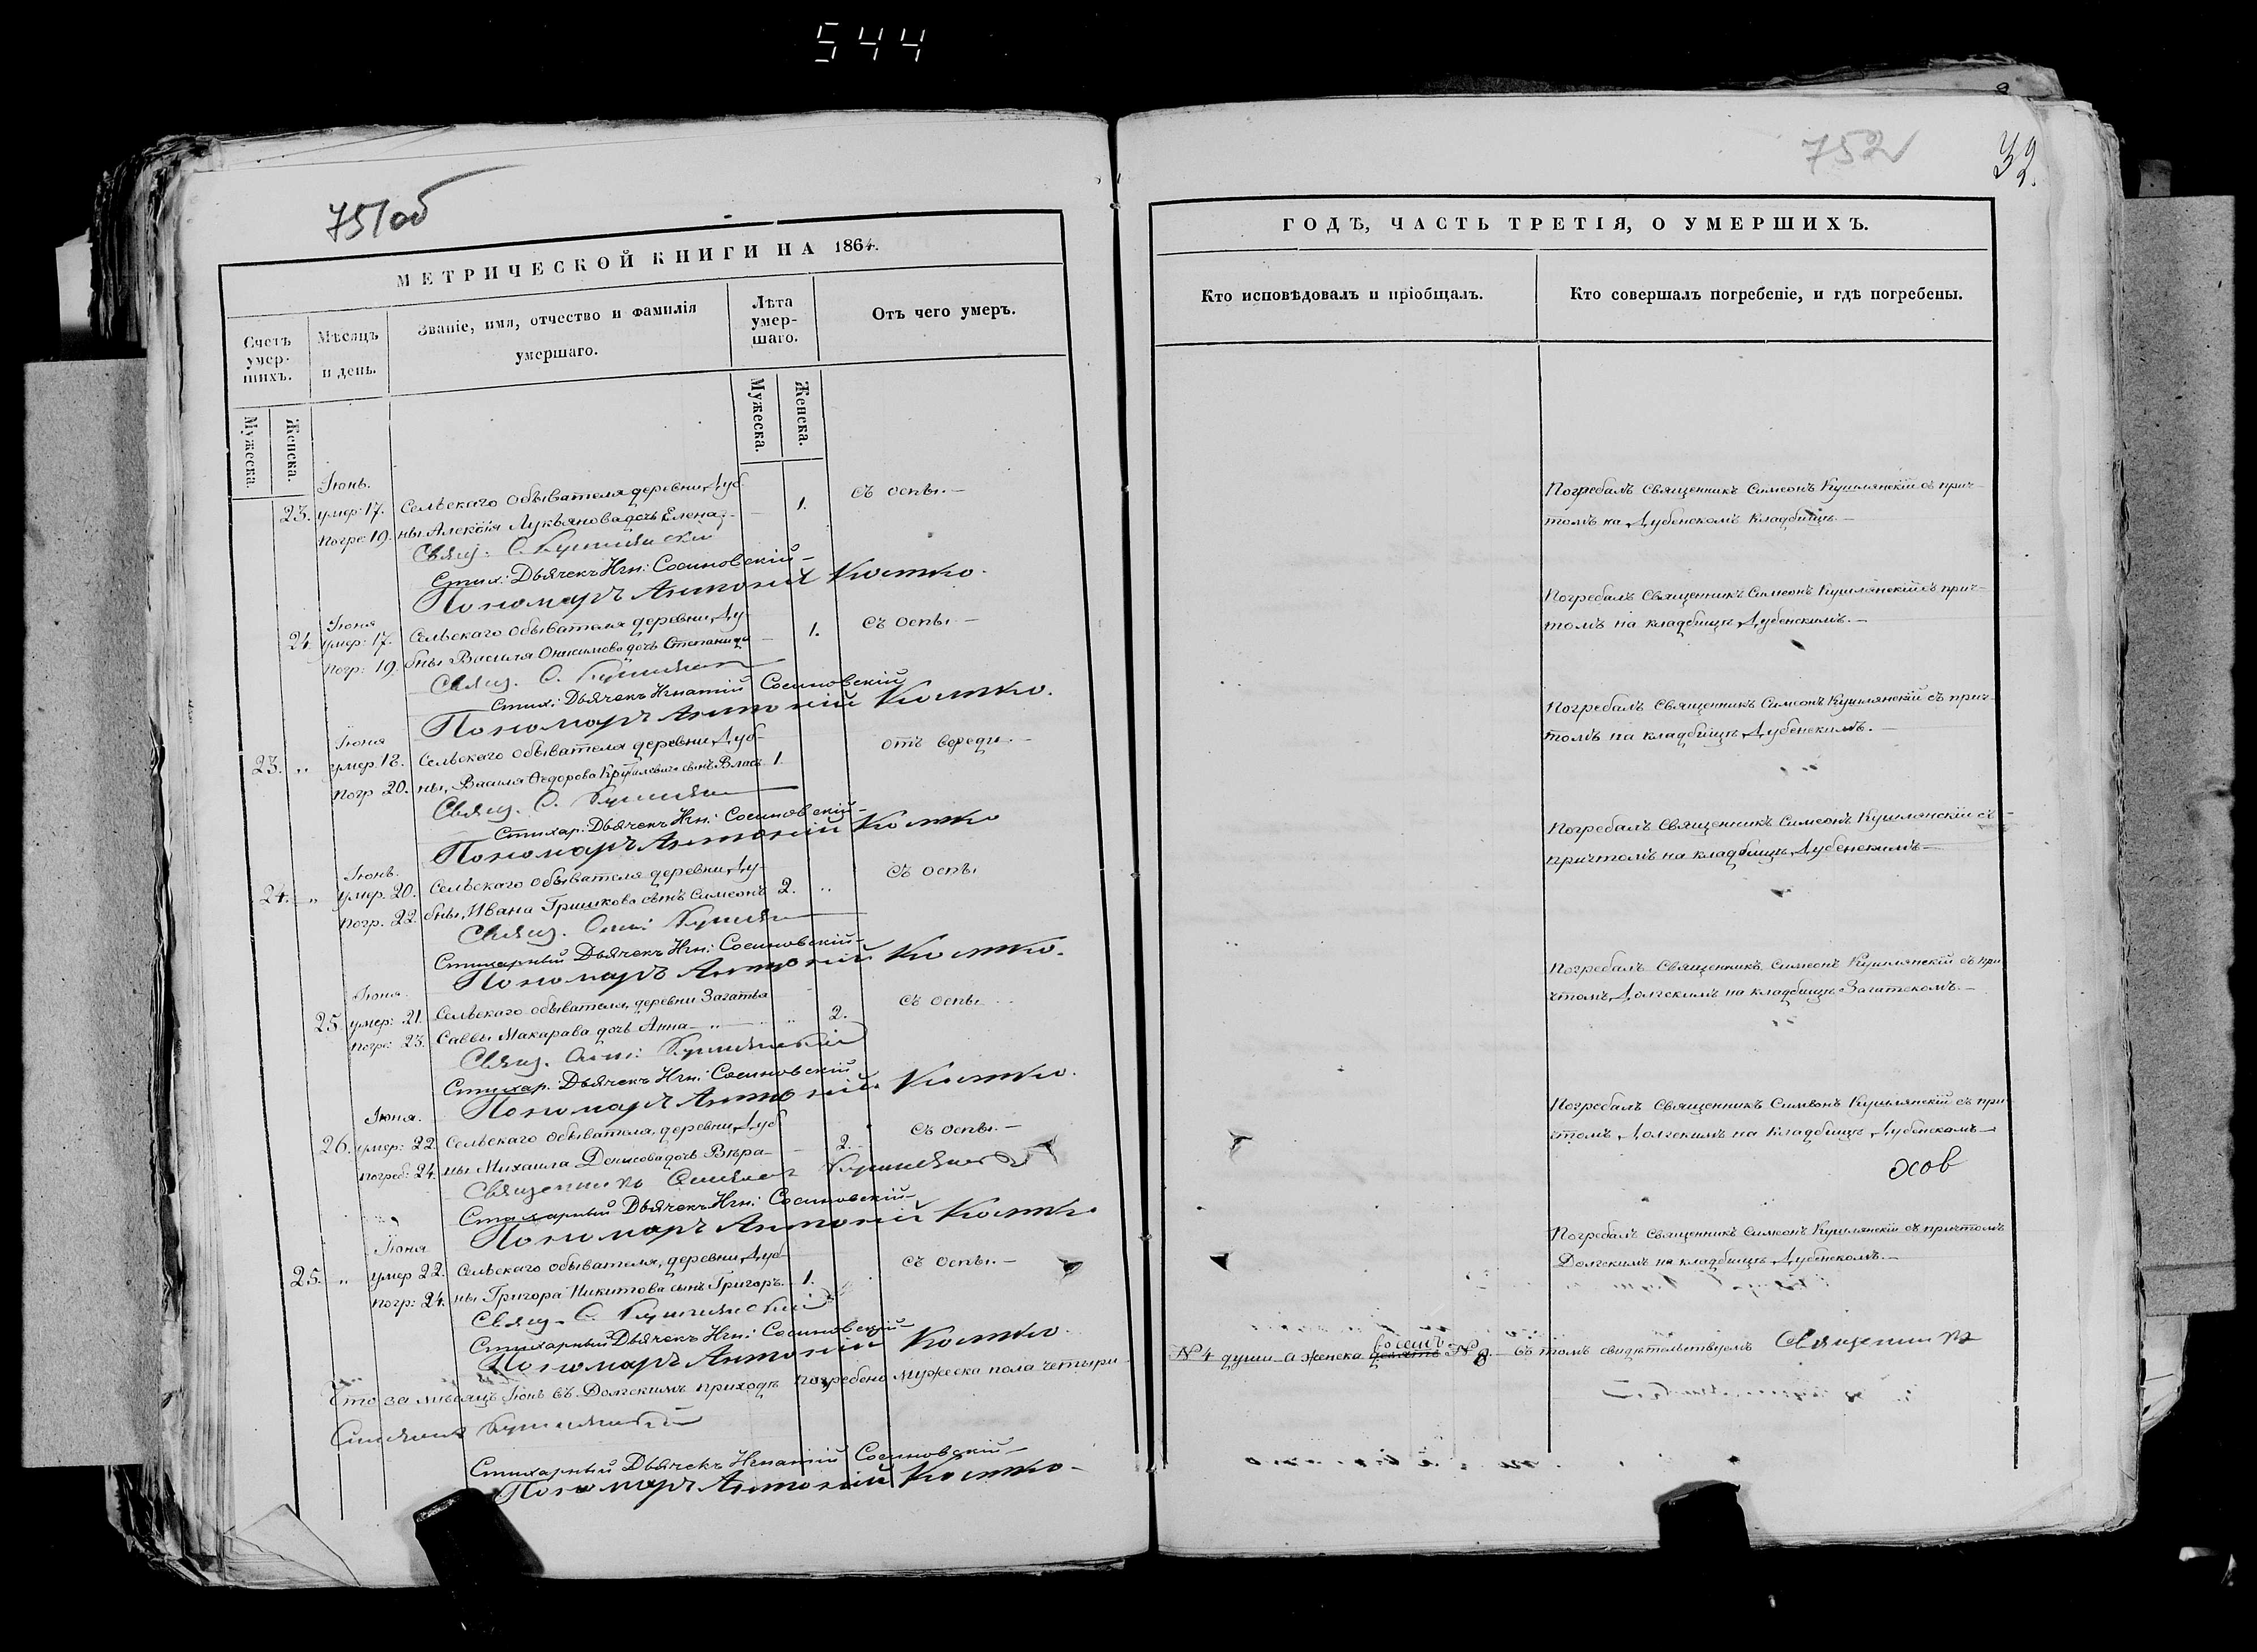 544
751об
МЕТРИЧЕСКОЙ КНИГИ НА 1864.
Счетъ умер-шихъ.
Мѣсяцъ и день.
Званіе, имя, отчество и фамилія умершаго.
Лѣта умер-шаго.
Отъ чего умеръ.
Мужеска.
Женска.
Мужеска.
Женска.
Іюнь.
23. умер: 17. Сельскаго обывателя деревни Дуб- 1. съ оспы.
погре: 19. ны Алексія Лукьянова дочь Елена
Свящ. С. Кушлянскій
Стих: Дьячекъ Игн: Сосиновскій
Пономарь Антоній Костко.
Іюня
24. умер: 17. Сельскаго обывателя деревни Ду- 1. съ оспы
погр: 19. бны Василя Онисимова дочь Степанида
Свящ. С.
Стих: Дьячекъ Игнатій Сосиновскій
Пономарь Антоній Костко.
Іюня
23. „ умер. 18. Сельскаго обывателя деревни Дуб- отъ вереди.
погр 20. ны, Василя Ѳедорова сынъ Власъ 1.
Свящ. С.
Стихар: Дьячекъ Игн: Сосиновскій
Пономарь Антоній Костко
Іюнь.
24. „ умер. 20. Сельскаго обывателя деревни Ду- съ оспы
погр. 22. бны, Ивана Гришкова сынъ Симеонъ 2. „
Свящ. Сим:
Стихарный Дьячекъ Игн: Сосиновскій
Пономарь Антоній Костко.
Іюня.
25. умер: 21. Сельскаго обывателя, деревни Загатья 2. съ оспы
погре: 23. Саввы Макарава дочь Анна
Свящ. Сим: Кушлянскій
Стихар: Дьячекъ Игн: Сосиновскій
Пономарь Антоній Костко.
Іюня.
26. умер: 22. Сельскаго обывателя, деревни Дуб 2. съ оспы.
погреб: 24. ны Михаила Денисова дочь Вѣра
Священникъ Симеонъ Кушлянскій
Стихарный Дьячекъ Игн: Сосиновскій
Пономарь Антоній Костко
Іюня
25. „ умер 22. Сельскаго обывателя, деревни Дуб- съ оспы.
погр: 24. ны Григора Никитова сынъ Григоръ 1.
Свящ. С. Кушлянскій
Стихарный Дьячекъ Игн: Сосиновскій
Пономарь Антоній Костко
Что за мѣсяцъ Іюнь въ Долгскимъ приходѣ погребено мужеска пола четыри
Симеонъ Кушлянскій
Стихарный Дьячекъ Игнатій Сосиновскій
Пономарь Антоній Костко
752
32.
ГОДЪ, ЧАСТЬ ТРЕТІЯ, О УМЕРШИХЪ.
Кто исповѣдовалъ и пріобщалъ.
Кто совершалъ погребеніе, и гдѣ погребены.
Погребалъ Священникъ Симеонъ Кушлянскій съ прич-
томъ на Дубенскомъ кладбищѣ
Погребалъ Священникъ Симеонъ Кушлянскій съ прич-
томъ на кладбищѣ Дубенскимъ.
Погребалъ Священникъ Симеонъ Кушлянскій съ прич-
томъ на кладбищѣ Дубенскимъ.
Погребалъ Священникъ Симеонъ Кушлянскій съ
причтомъ на кладбищѣ Дубенскимъ
Погребалъ Священникъ Симеонъ Кушлянскій съ при
чтомъ Долгскимъ на кладбищѣ Загатскомъ.
Погребалъ Священникъ Симеонъ Кушлянскій съ при
чтомъ Долгскимъ на кладбищѣ Дубенскомъ
Погребалъ Священникъ Симеонъ Кушлянскій съ причтомъ
Долгскимъ на кладбищѣ Дубенскомъ.
восемь
№ 4 души а женска девять № 8. въ томъ свидѣтельствуемъ Священникъ